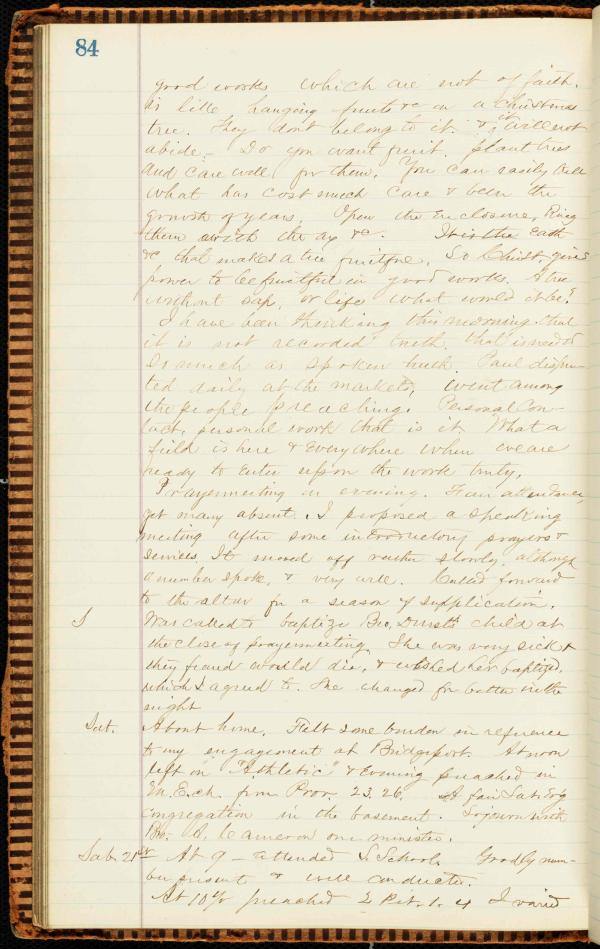 84
good works which are not of faith.
is like hanging fruits &c on a Christmas
tree. They dont belong to it. & it will not
abide. Do you want fruit. plant trees
and care well for them. You can easily tell
what has cost much care & been the
growth of years. Open the enclosure, Ring
them with the ax &c. It is the earth
&c that makes a tree fruitful. So Christ, gives
power to be fruitful in good works. A tree
without sap, or life what would it be?
I have been thinking this morning that
it is not recorded truth, that is needed
so much as spoken truth. Paul dispu-
ted daily at the markets, went among
the people preaching. Personal Con-
tact, personal work that is it. What a
field is here & everywhere when we are
ready to enter upon the work truly.
Prayermeeting in evening. Fair attendance,
yet many absent. I proposed a speaking
meeting after some introductory prayers &
services. It moved off rather slowly. although
a number spoke, & very well. Called forward
to the altar for a season of supplication.
S Was called to baptize Bro. Durst's child at
the close of prayermeeting. She was very sick &
they feared would die, & wished her baptized.
which I agreed to. She changed for better in the
night
Sat. About home. Felt some burden in reference
to my engagement at Bridgeport. At noon
left on "Athletic" & evening preached in
M.E.ch. from Prov. 23.26. A fair Sat. Evg
congregation in the basement. Sojourn with
Bro. Cameron our minister.
Sab. 21st At 9 – attended S. School. Goodly num-
ber present & well conducted.
At 10½ preached 2 Pet. 1. 4 I varied